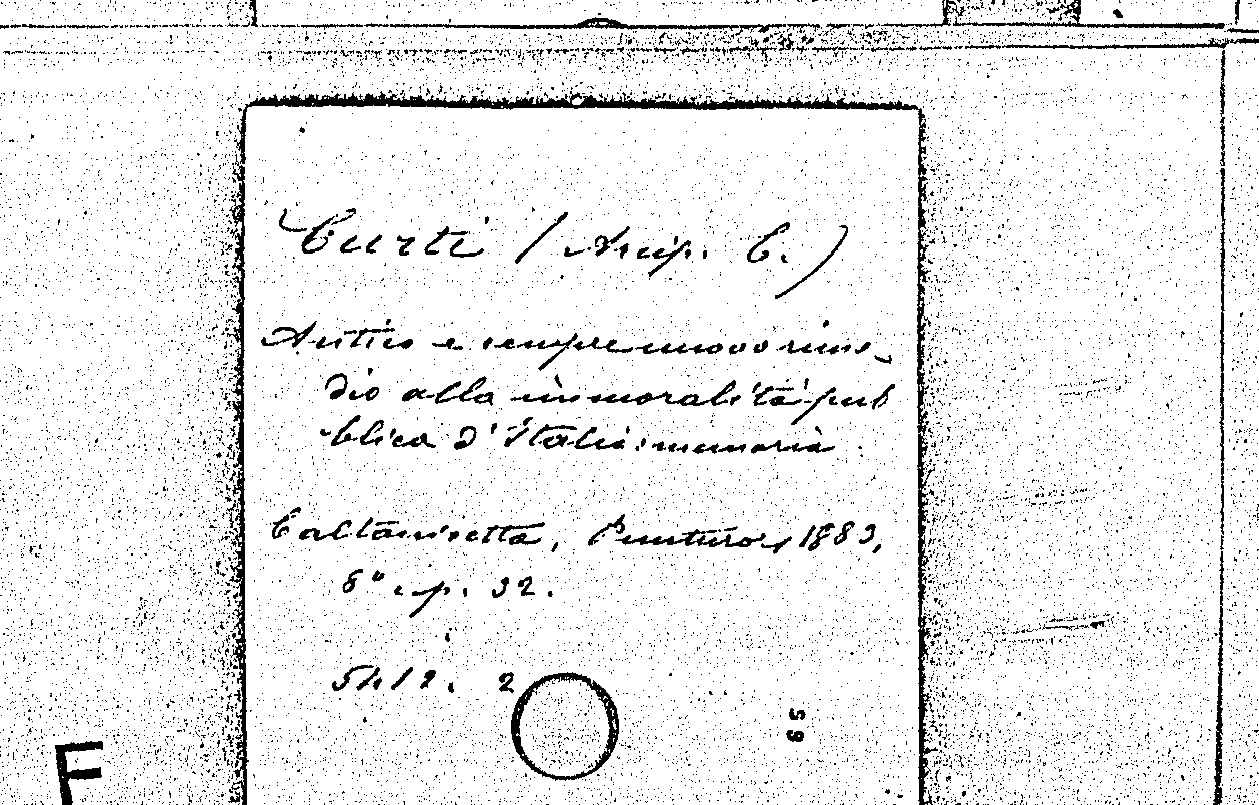 Curti (Arcip. C.)
Antico e sempre nuovo rime-
dio alla immoralità pub
blica d'Italia: memoria
Caltanisetta, Punturo, 1883,
8° p. 32.
5412. 2
65
F